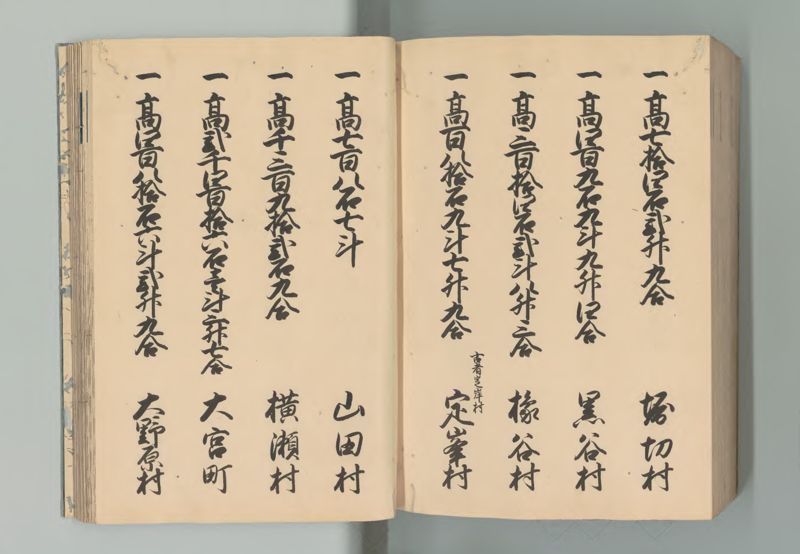 一高七拾四石弐斗九合 堀切村
一高四百九石九斗九升四合 黒谷村
一高三百拾四石弐斗八升三合 椽谷村
一高百八拾石九斗七升九合 定峯村
一高七百八石七斗 山田村
一高千三百九拾弐石九合 横瀬村
一高弐千四百拾六石壱斗三升七合 大宮町
一高四百八拾石六斗弐升九合 大野原村